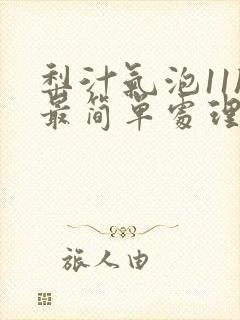 梨汁氣泡11
最简單處理
旅人由